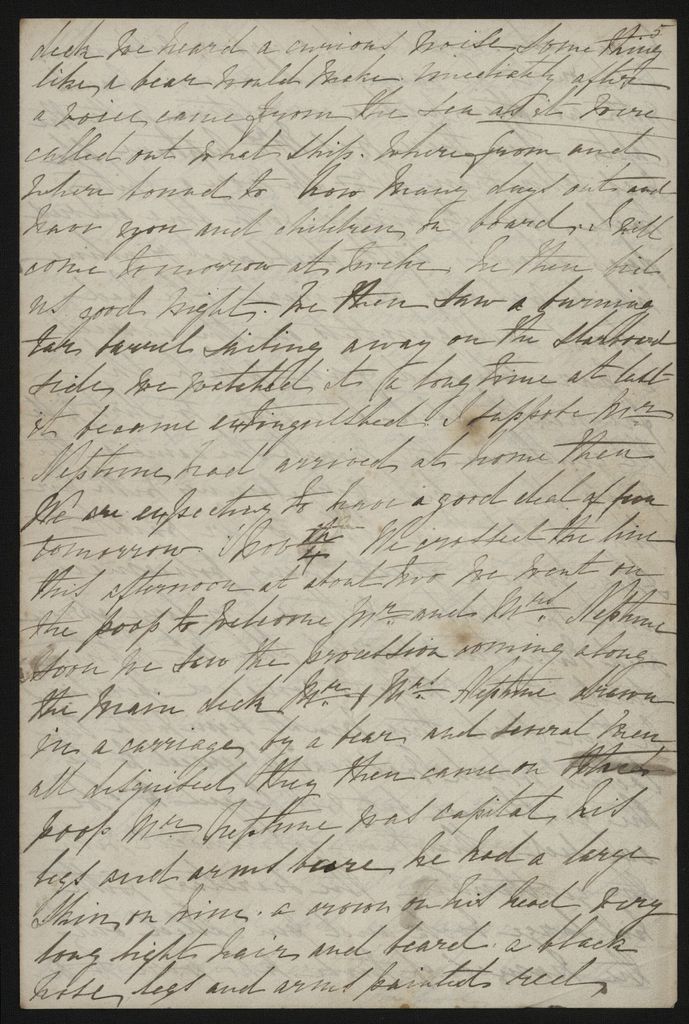 5
deck we heard a curious noise some thing
like a bear would make. imediately after
a voice came from the sea as it were
called out what ship. where from and
where bound to how many days out and
have you and children on board. I will
come tomorrow at twelve he then bid
us good night. We then saw a burning
tar barrel sailing away on the starboard
side, we watched it a long time at last
it became extinguished. I suppose Mr
Neptune had arrived at home then
We are expecting to have a good deal of fun
tomorrow Nov 4th We crossed the line
this afternoon at about two we went on
the poop to welcome Mr and Mrs Neptune
soon we saw the procession coming along
the main deck Mr & Mrs Neptune drawn
in a carriage by a bear and several men
all disguised they then came on
poop Mr Neptune was capital, his
legs and arms beare he had a large
skin on him. a crown on his head very
long light hair and beard. a black
nose, legs and arms painted red,